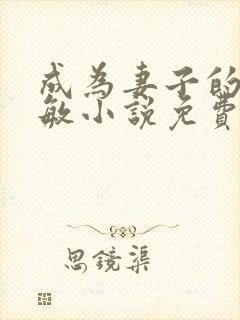 成為妻子的
敏小説免費
思鏡渠